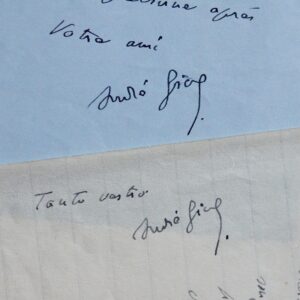 après
Votre ami
André Gide.
Tanto vostro
André Gide.